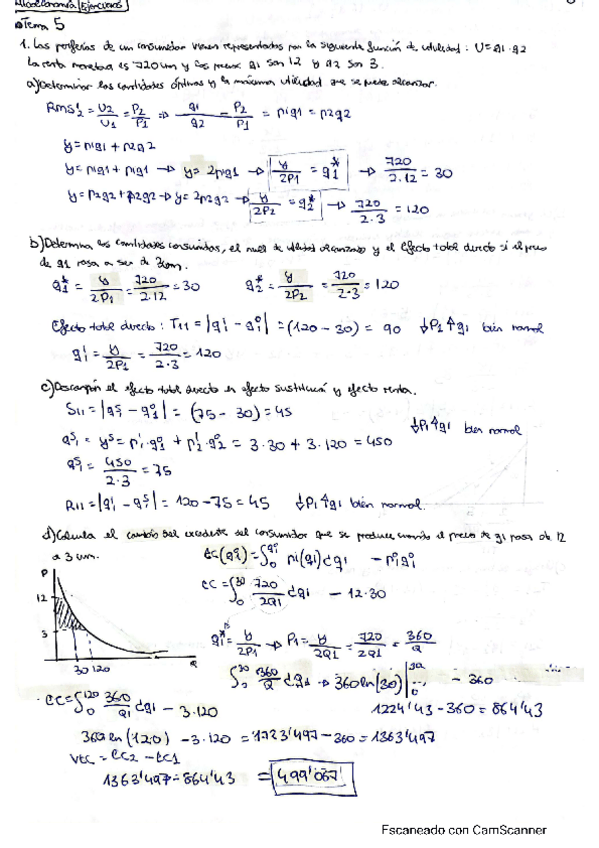 Microeconomía (Ejercicios)
Tema 5
1. Las preferencias de un consumidor vienen representadas por la siguiente función de utilidad: U=q1·q2
La renta monetaria es 720um y los precios q1 son 12 y q2 son 3.
a) Determinar las cantidades óptimas y la máxima utilidad que se puede alcanzar.
U2/U1 = P2/P1 ⇒ q1/q2 = P2/P1 = p1q1 = p2q2
y = p1q1 + p2q2
y = p1q1 + p1q1 → y = 2p1q1 → y/2P1 = q1* → 720/2.12 = 30
y = p2q2 + p2q2 → y = 2p2q2 → y/2P2 = q2* → 720/2.3 = 120
b) Determina las cantidades consumidas, el nivel de utilidad alcanzado y el efecto total directo si el precio
de q1 pasa a ser de 3um.
q1* = y/2P1 = 720/2.12 = 30 q2* = y/2P2 = 720/2·3 = 120
Efecto total directo: T11 = |q1¹ - q1⁰| = (120-30) = 90 ↓P1 ↑q1 bien normal
q1¹ = y/2P1 = 720/2·3 = 120
c) Descompón el efecto total directo en efecto sustitución y efecto renta.
S11 = |q1ˢ - q1⁰| = (75-30) = 45
↓P1 ↑q1 bien normal
q1ˢ = yˢ = p1¹·q1⁰ + p2¹·q2⁰ = 3·30 + 3·120 = 450
q1ˢ = 450/2·3 = 75
R11 = |q1¹ - q1ˢ| = 120-75 = 45 ↓P1 ↑q1 bien normal.
d) Calcula el cambio del excedente del consumidor que se produce cuando el precio de q1 pasa de 12
a 3 um.
P
12
3
30 120
Q
EC = ∫₀³⁰ 720/2Q1 dq1 - 12·30
q1* = y/2P1 → P1 = y/2Q1 = 720/2Q1 = 360/Q
360 ln(30)
- 360
1224'43 - 360 = 864'43
EC = ∫₀¹²⁰ 360/Q1 dq1 - 3·120
360 ln(120) - 3·120 = 1723'497 - 360 = 1363'497
VEC = EC2 - EC1
1363'497 - 864'43 = 499'067
Escaneado con CamScanner